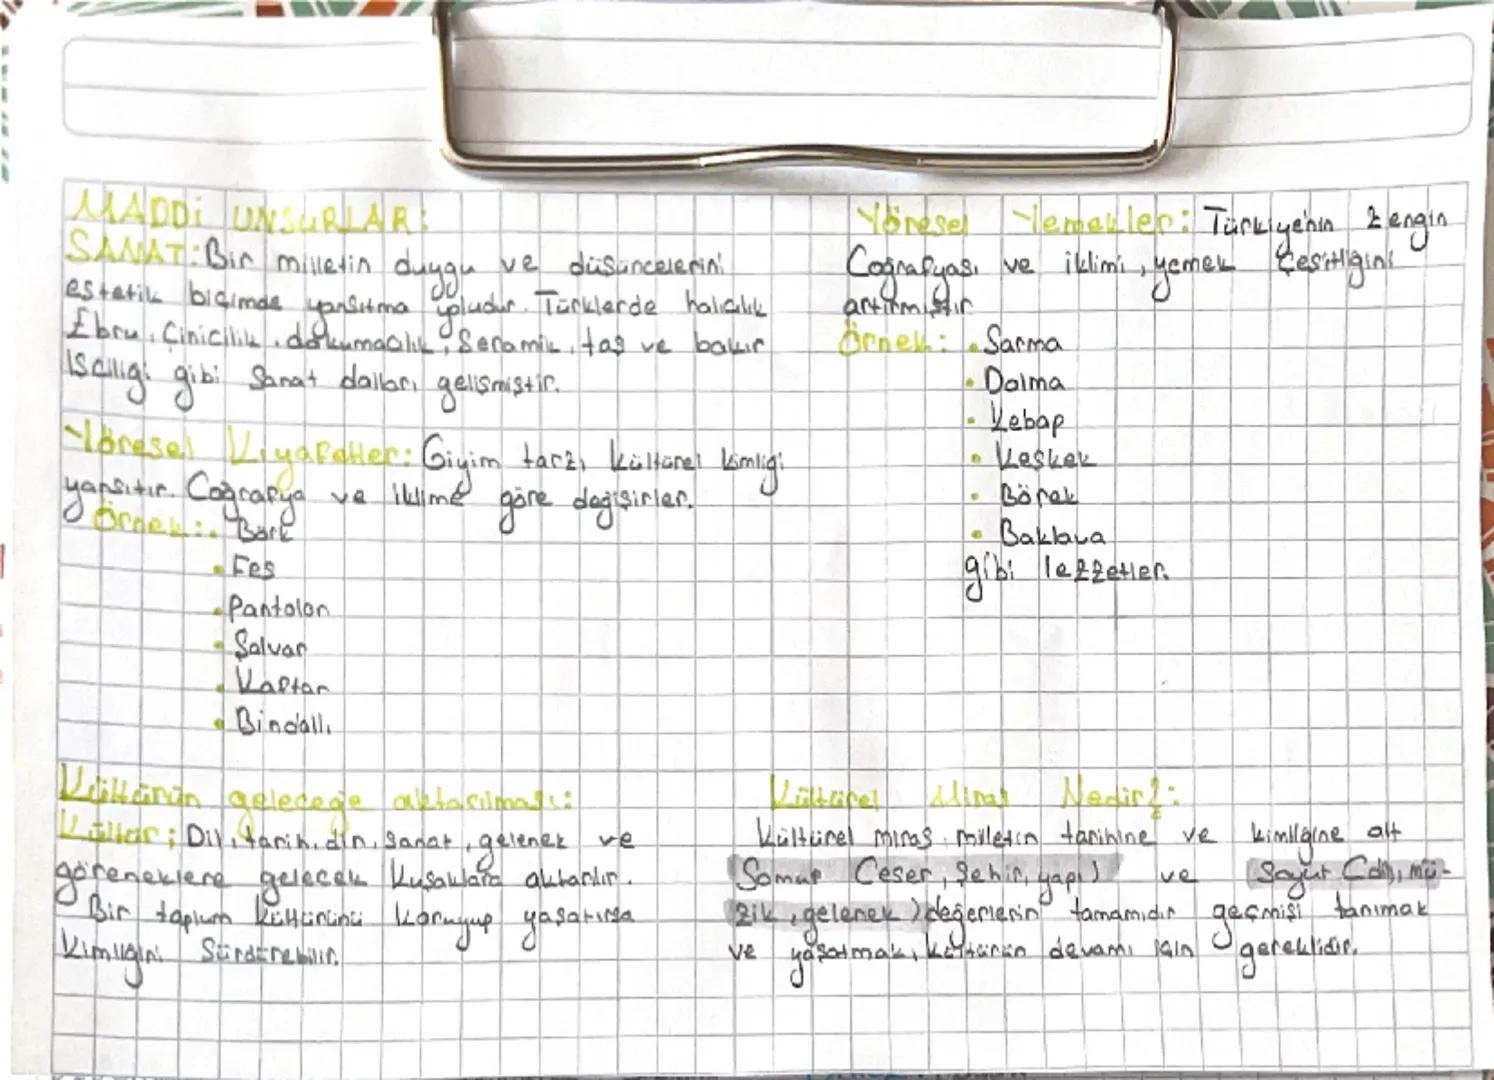 MADDİ UNSURLAR:
SANAT: Bir milletin duygu ve düşüncelerini
estetik biçimde yansıtma yoludur. Türklerde halıcılık
Ebru, Çinicilik, dokumacılık, Seramik, taş ve bakır
İşçiliği gibi Sanat dalları gelişmiştir.
Yöresel Kıyafetler: Giyim tarzı kültürel kimliği
yansıtır. Coğrafya ve iklime göre değişirler.
Örnek: • Börk
• Fes
• Pantolon
• Şalvar
• Kaftan
• Bindallı
Yöresel Yemekler: Türkiye'nin zengin
Coğrafyası ve iklimi, yemek çeşitliğini
artırmıştır
Örnek: • Sarma
• Dolma
• Kebap
• Keşkek
• Börek
• Baklava
gibi lezzetler.
Kültürün geleceğe aktarılması:
Kültür; Dil, tarih, din, sanat, gelenek ve
göreneklere gelecek kuşaklara aktarılır.
Bir toplum kültürünü koruyup yaşatırsa
kimliğini Sürdürebilir.
Kültürel Miras Nedir?:
Kültürel miras milletin tarihine ve kimliğine ait
Somut (eser, şehir, yapı) ve Soyut (dil, mü-
zik, gelenek) değerlerin tamamıdır geçmişi tanımak
ve yaşatmak, kültürün devamı için gereklidir.